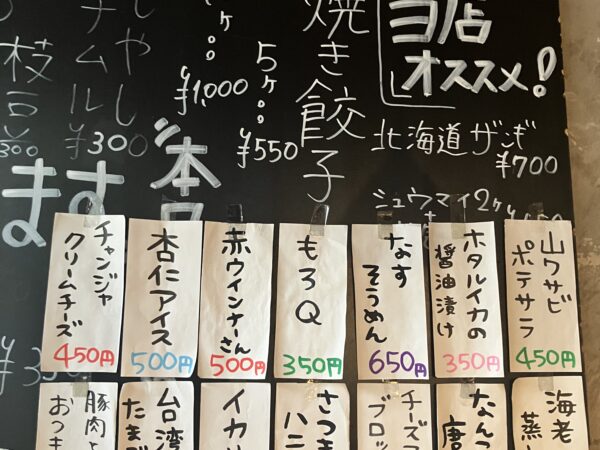 当店
オススメ!
北海道ザンギ
¥700
シュウマイ2ヶ
焼き餃子
5ヶ
¥550
¥1,000
¥300
枝豆
ます
本日
山ワサビ
ポテサラ
450円
ホタルイカの
醤油漬け
350円
なす
そうめん
650円
もろQ
350円
赤ウインナーさん
500円
杏仁アイス
500円
チャンジャ
クリームチーズ
450円
海老
蒸し
なんこつ
唐
チーズ
ブロッ
さつま
ハニ
イカ
台湾
たまご
豚肉と
おつま